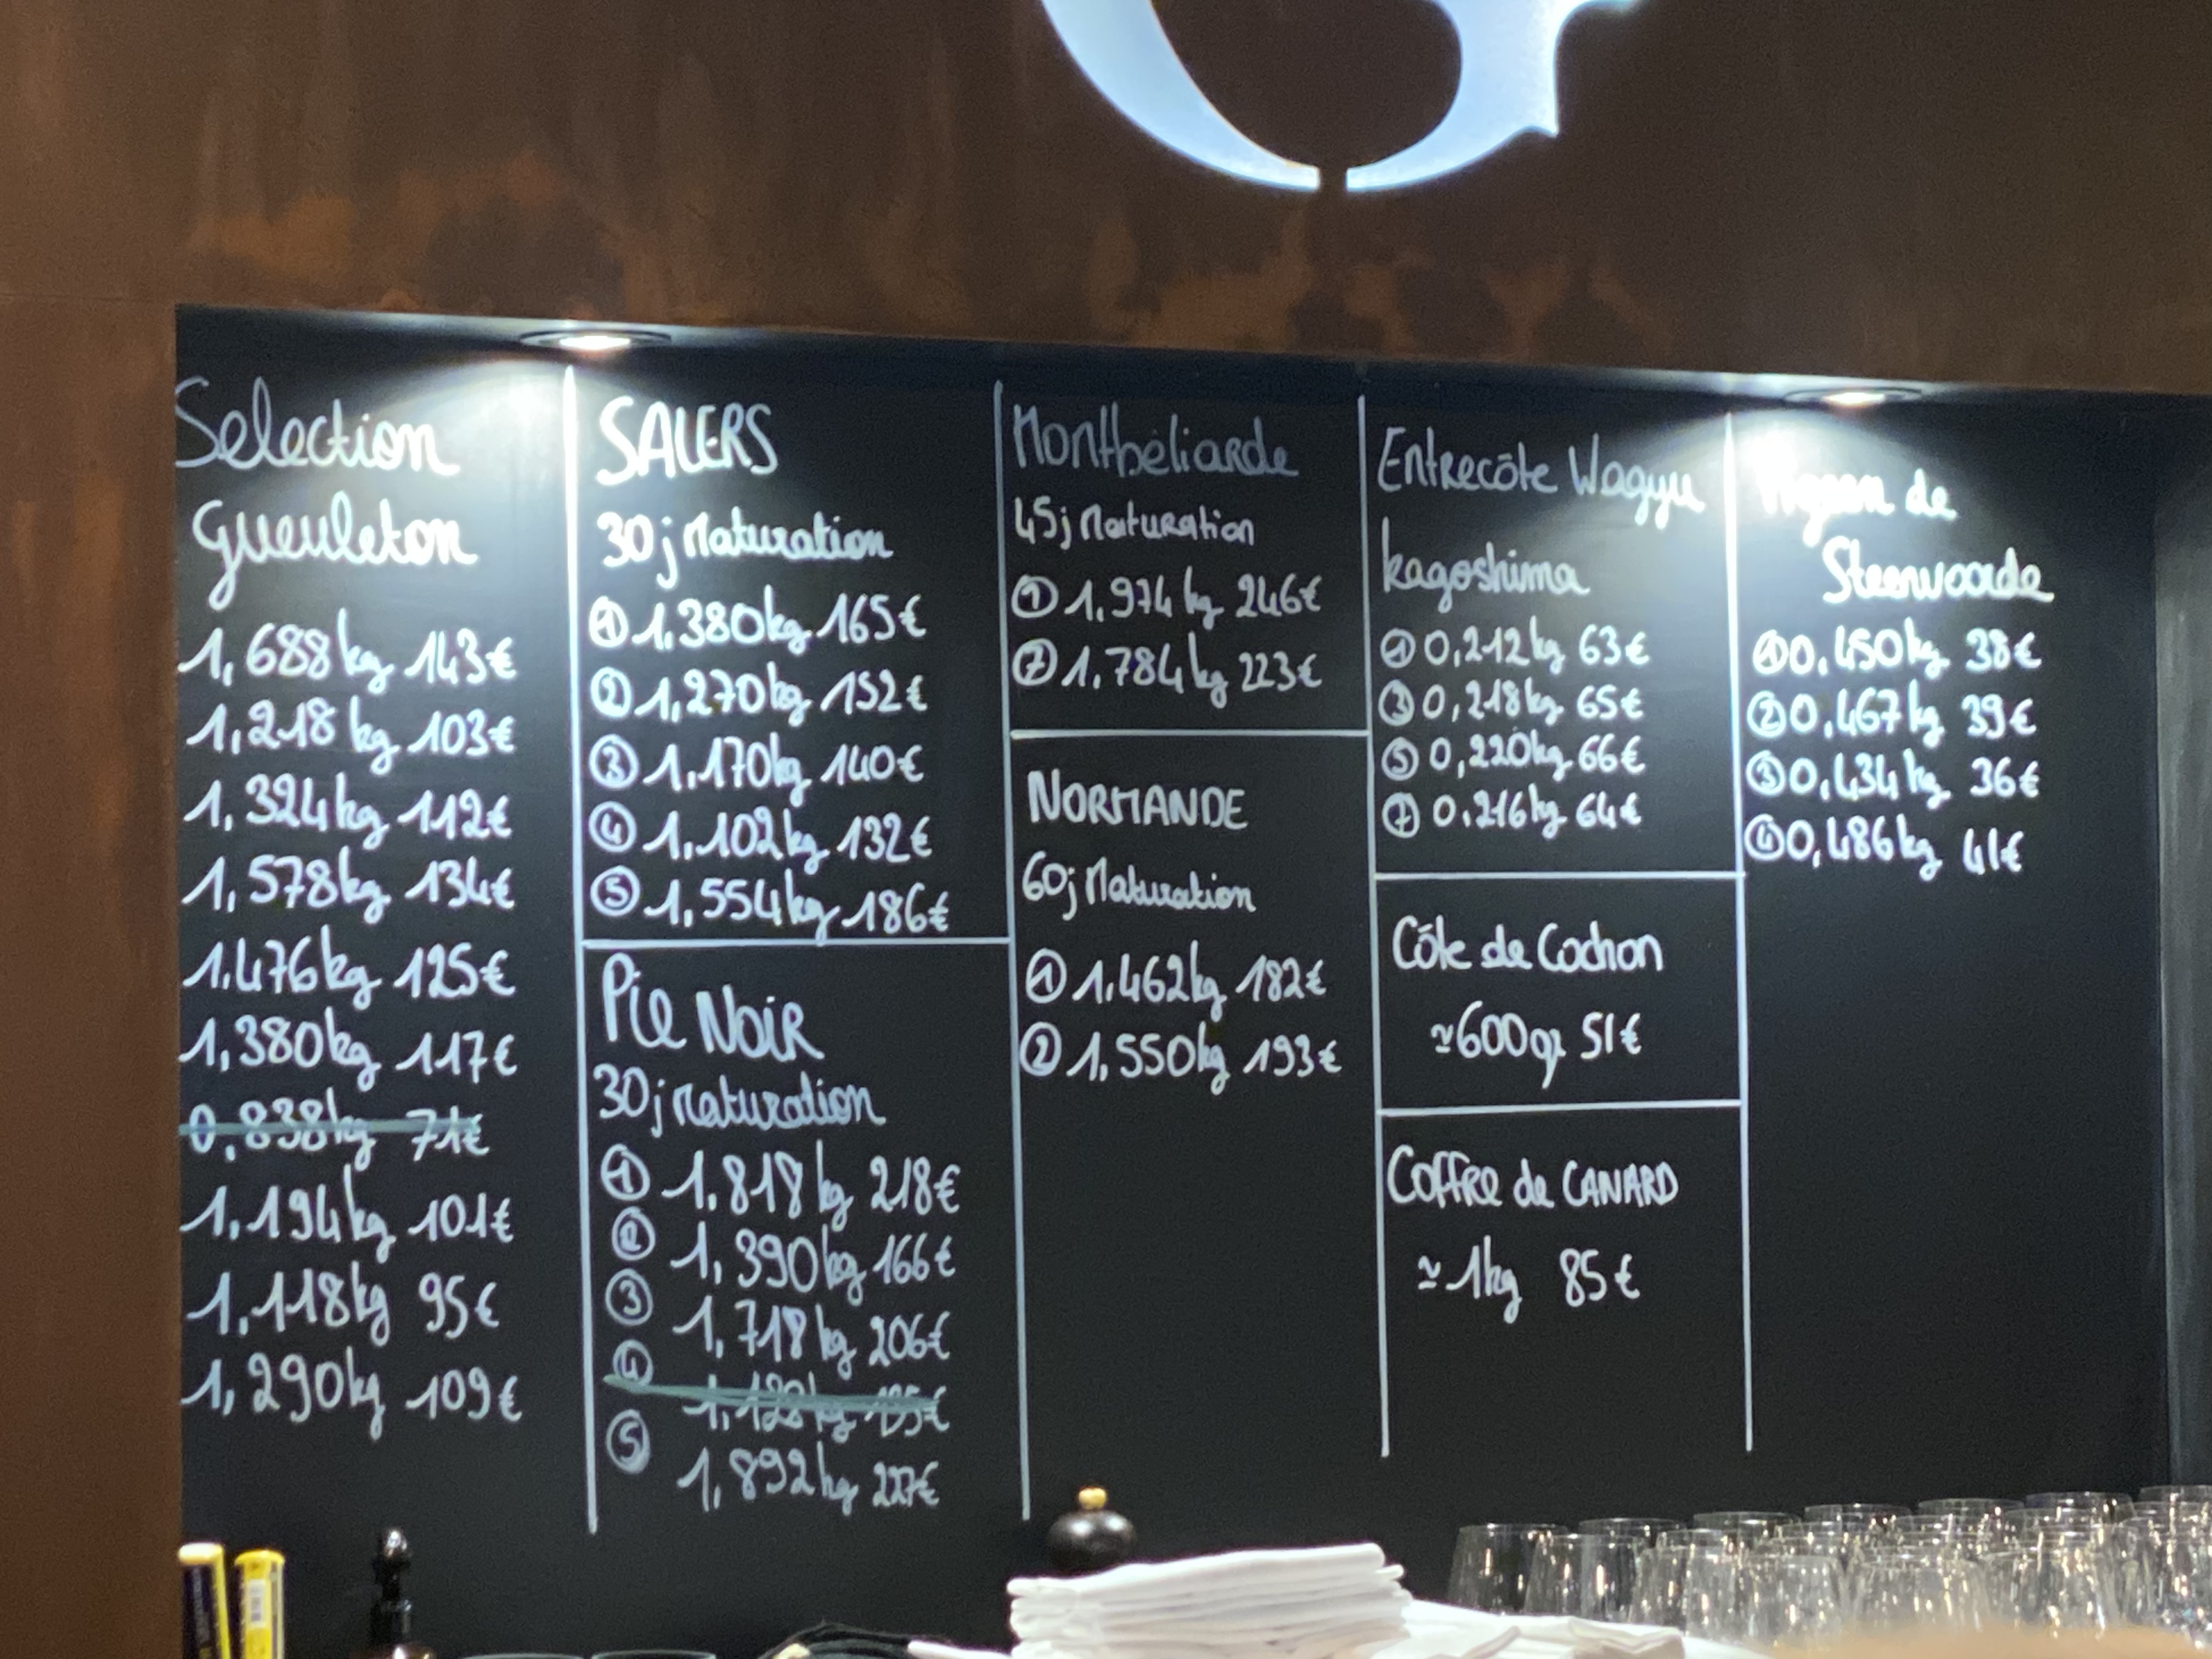 Selection
Gueuleton
1,688kg 143€
1,218kg 103€
1,324kg 112€
1,578kg 134€
1.476kg 125€
1,380kg 117€
0,838kg 71€
1,194kg 101€
1,118kg 95€
1,290kg 109€
SALERS
30j Maturation
① 1,380kg 165€
② 1,270kg 152€
③ 1,170kg 140€
④ 1,102kg 132€
⑤ 1,554kg 186€
Pie Noir
30j Maturation
① 1.818kg 218€
② 1,390kg 166€
③ 1,718kg 206€
④ 1,128kg 135€
⑤ 1,892kg 227€
Montbéliarde
45j Maturation
① 1,974kg 246€
② 1,784kg 223€
NORMANDE
60j Maturation
① 1.462kg 182€
② 1,550kg 193€
Entrecôte Wagyu
kagoshima
① 0,212kg 63€
③ 0,218kg 65€
⑤ 0,220kg 66€
⑦ 0,216kg 64€
Côte de Cochon
≃600gr 51€
Coffre de CANARD
≃1kg 85€
Pigeon de
Steenvoorde
① 0,450kg 38€
② 0,467kg 39€
③ 0,434kg 36€
④ 0,486kg 41€